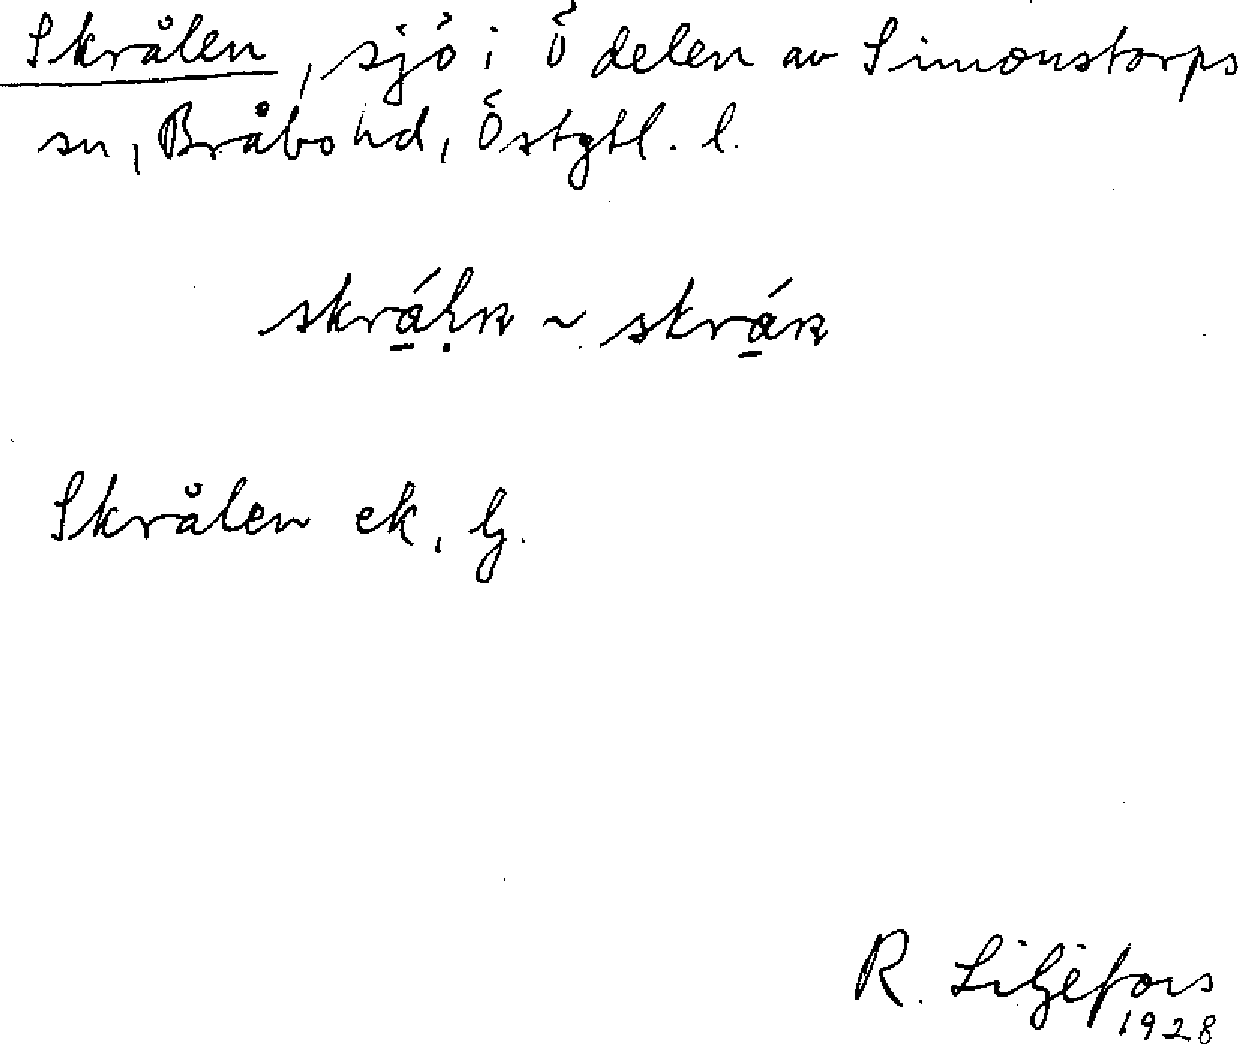 Skrålen, sjö i Ö delen av Simonstorps
sn, Bråbo hd, Östgtl. l.
skrá̱ḷn ~ skrá̱n
Skrålen ek. G.
R. Liljefors
1928